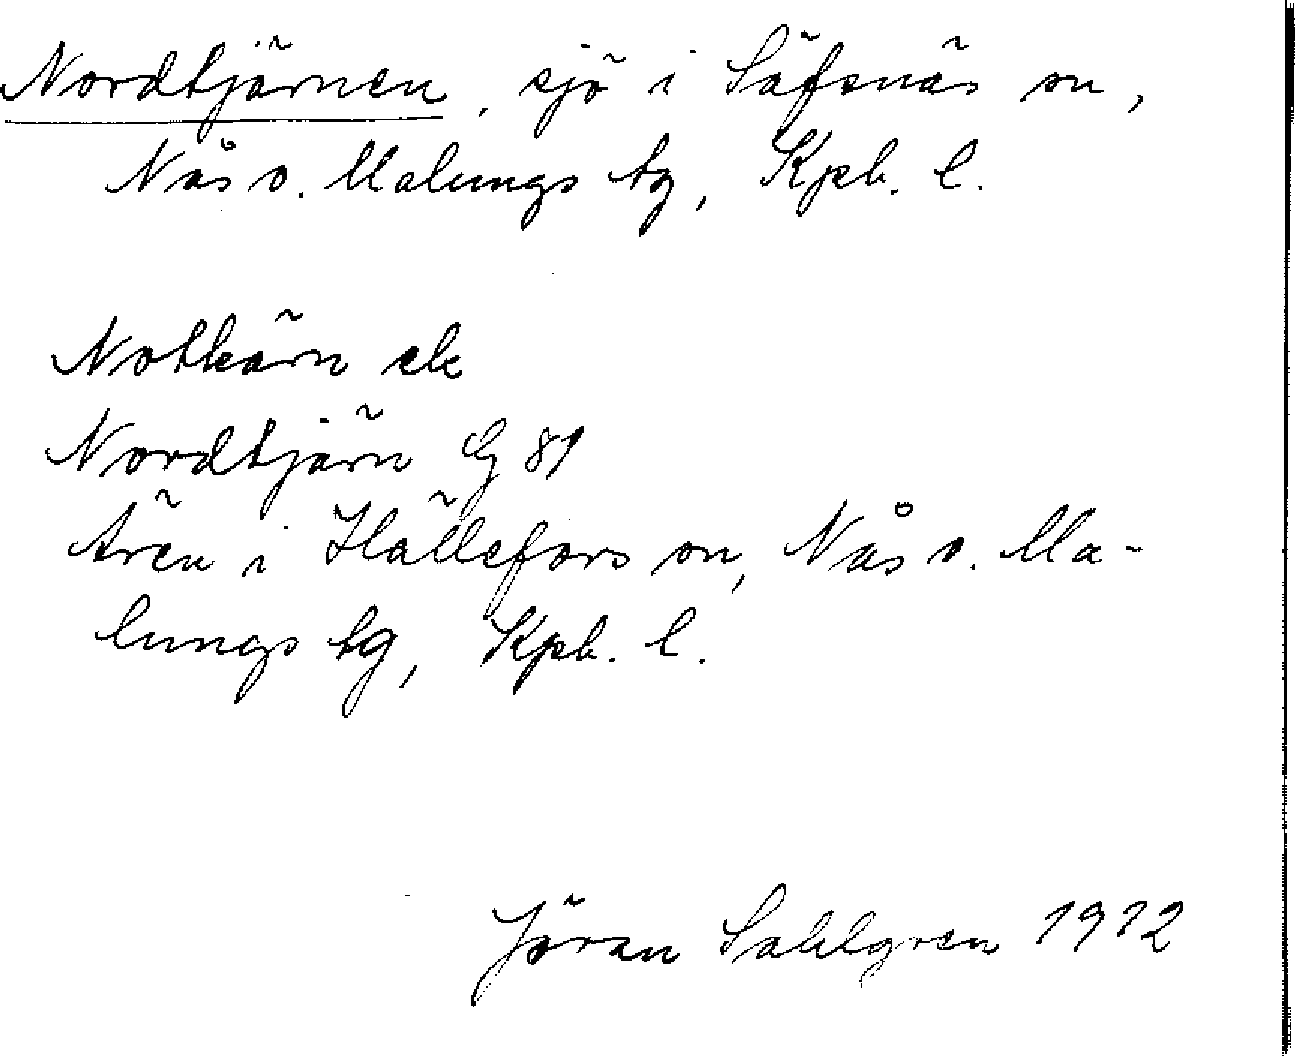 Nordtjärnen, sjö i Säfsnäs sn,
Nås o. Malungs tg, Kpb. l.
Notkärn ek
Nordtjärn G 81
Ären i Hällefors sn, Nås o. Ma-
lungs tg, Kpb. l.
Jöran Sahlgren 1912